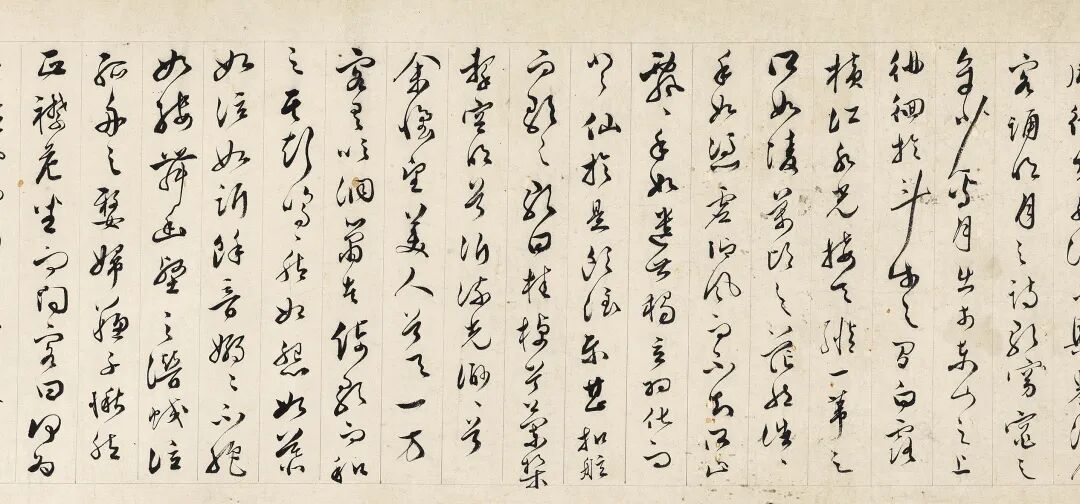 客誦明月之詩歌窈窕之
章少焉月出於東山之上
徘徊於斗牛之間白露
橫江水光接天縱一葦之
所如陵萬頃之茫然浩〻
乎如憑虛御風而不知所止
飄〻乎如遺世獨立羽化而
登仙於是飲酒樂甚扣舷
而歌之歌曰桂棹兮蘭槳
擊空明兮泝流光渺〻兮
余懷望美人兮天一方
客有吹洞簫者倚歌而和
之其聲嗚〻然如怨如慕
如泣如訴餘音嫋〻不絕
如縷舞幽壑之潛蛟泣
孤舟之嫠婦蘇子愀然
正襟危坐而問客曰何為